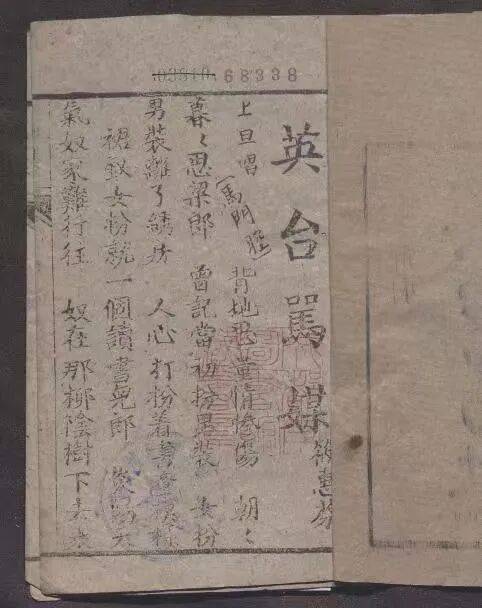 03810 68338
英台罵媒
筱惠芬
上旦唱(馬門腔)背地悲量情慘傷 朝々
暮々思梁郎 曾記當初扮男裝 女扮
男裝離了綉房 人心打扮着書
裙釵女扮就一個讀書兒郎
氣奴家難行往 奴在那柳陰樹下去